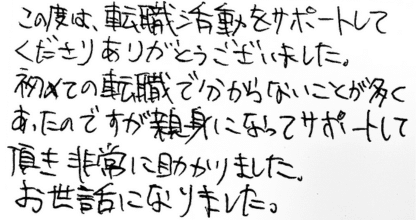 この度は、転職活動をサポートして
くださりありがとうございました。
初めての転職で分からないことが多く
あったのですが親身になってサポートして
頂き非常に助かりました。
お世話になりました。